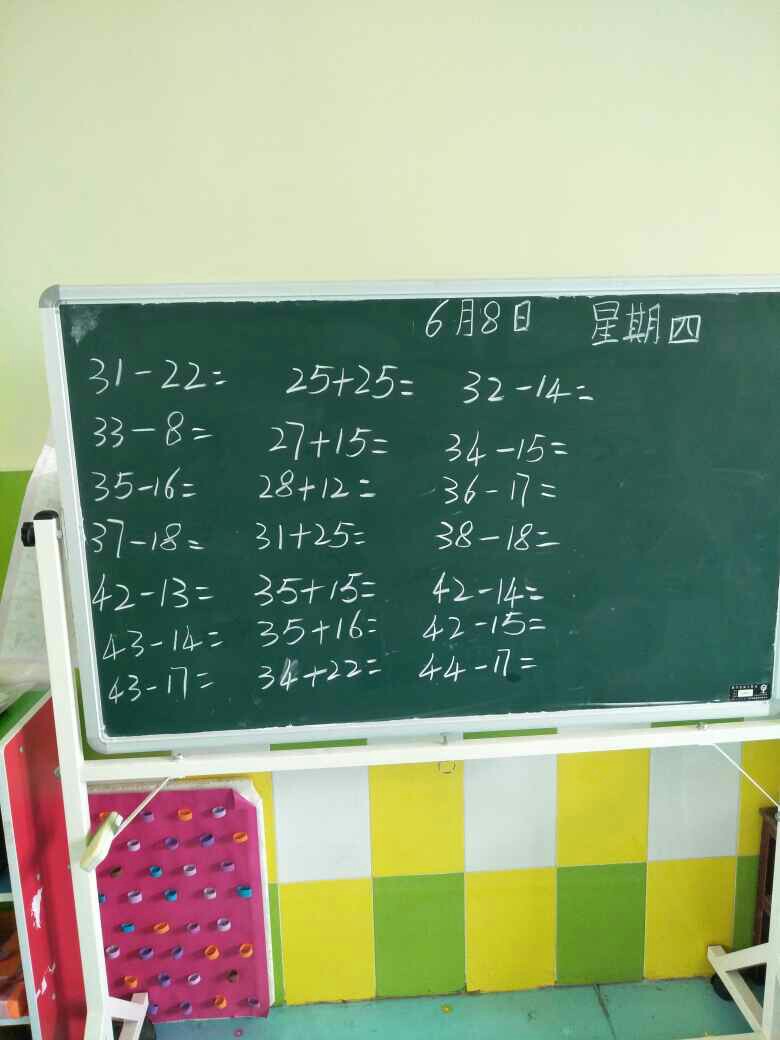 6月8日 星期四
31-22= 25+25= 32-14=
33-8= 27+15= 34-15=
35-16= 28+12= 36-17=
37-18= 31+25= 38-18=
42-13= 35+15= 42-14=
43-14= 35+16= 42-15=
43-17= 34+22= 44-17=